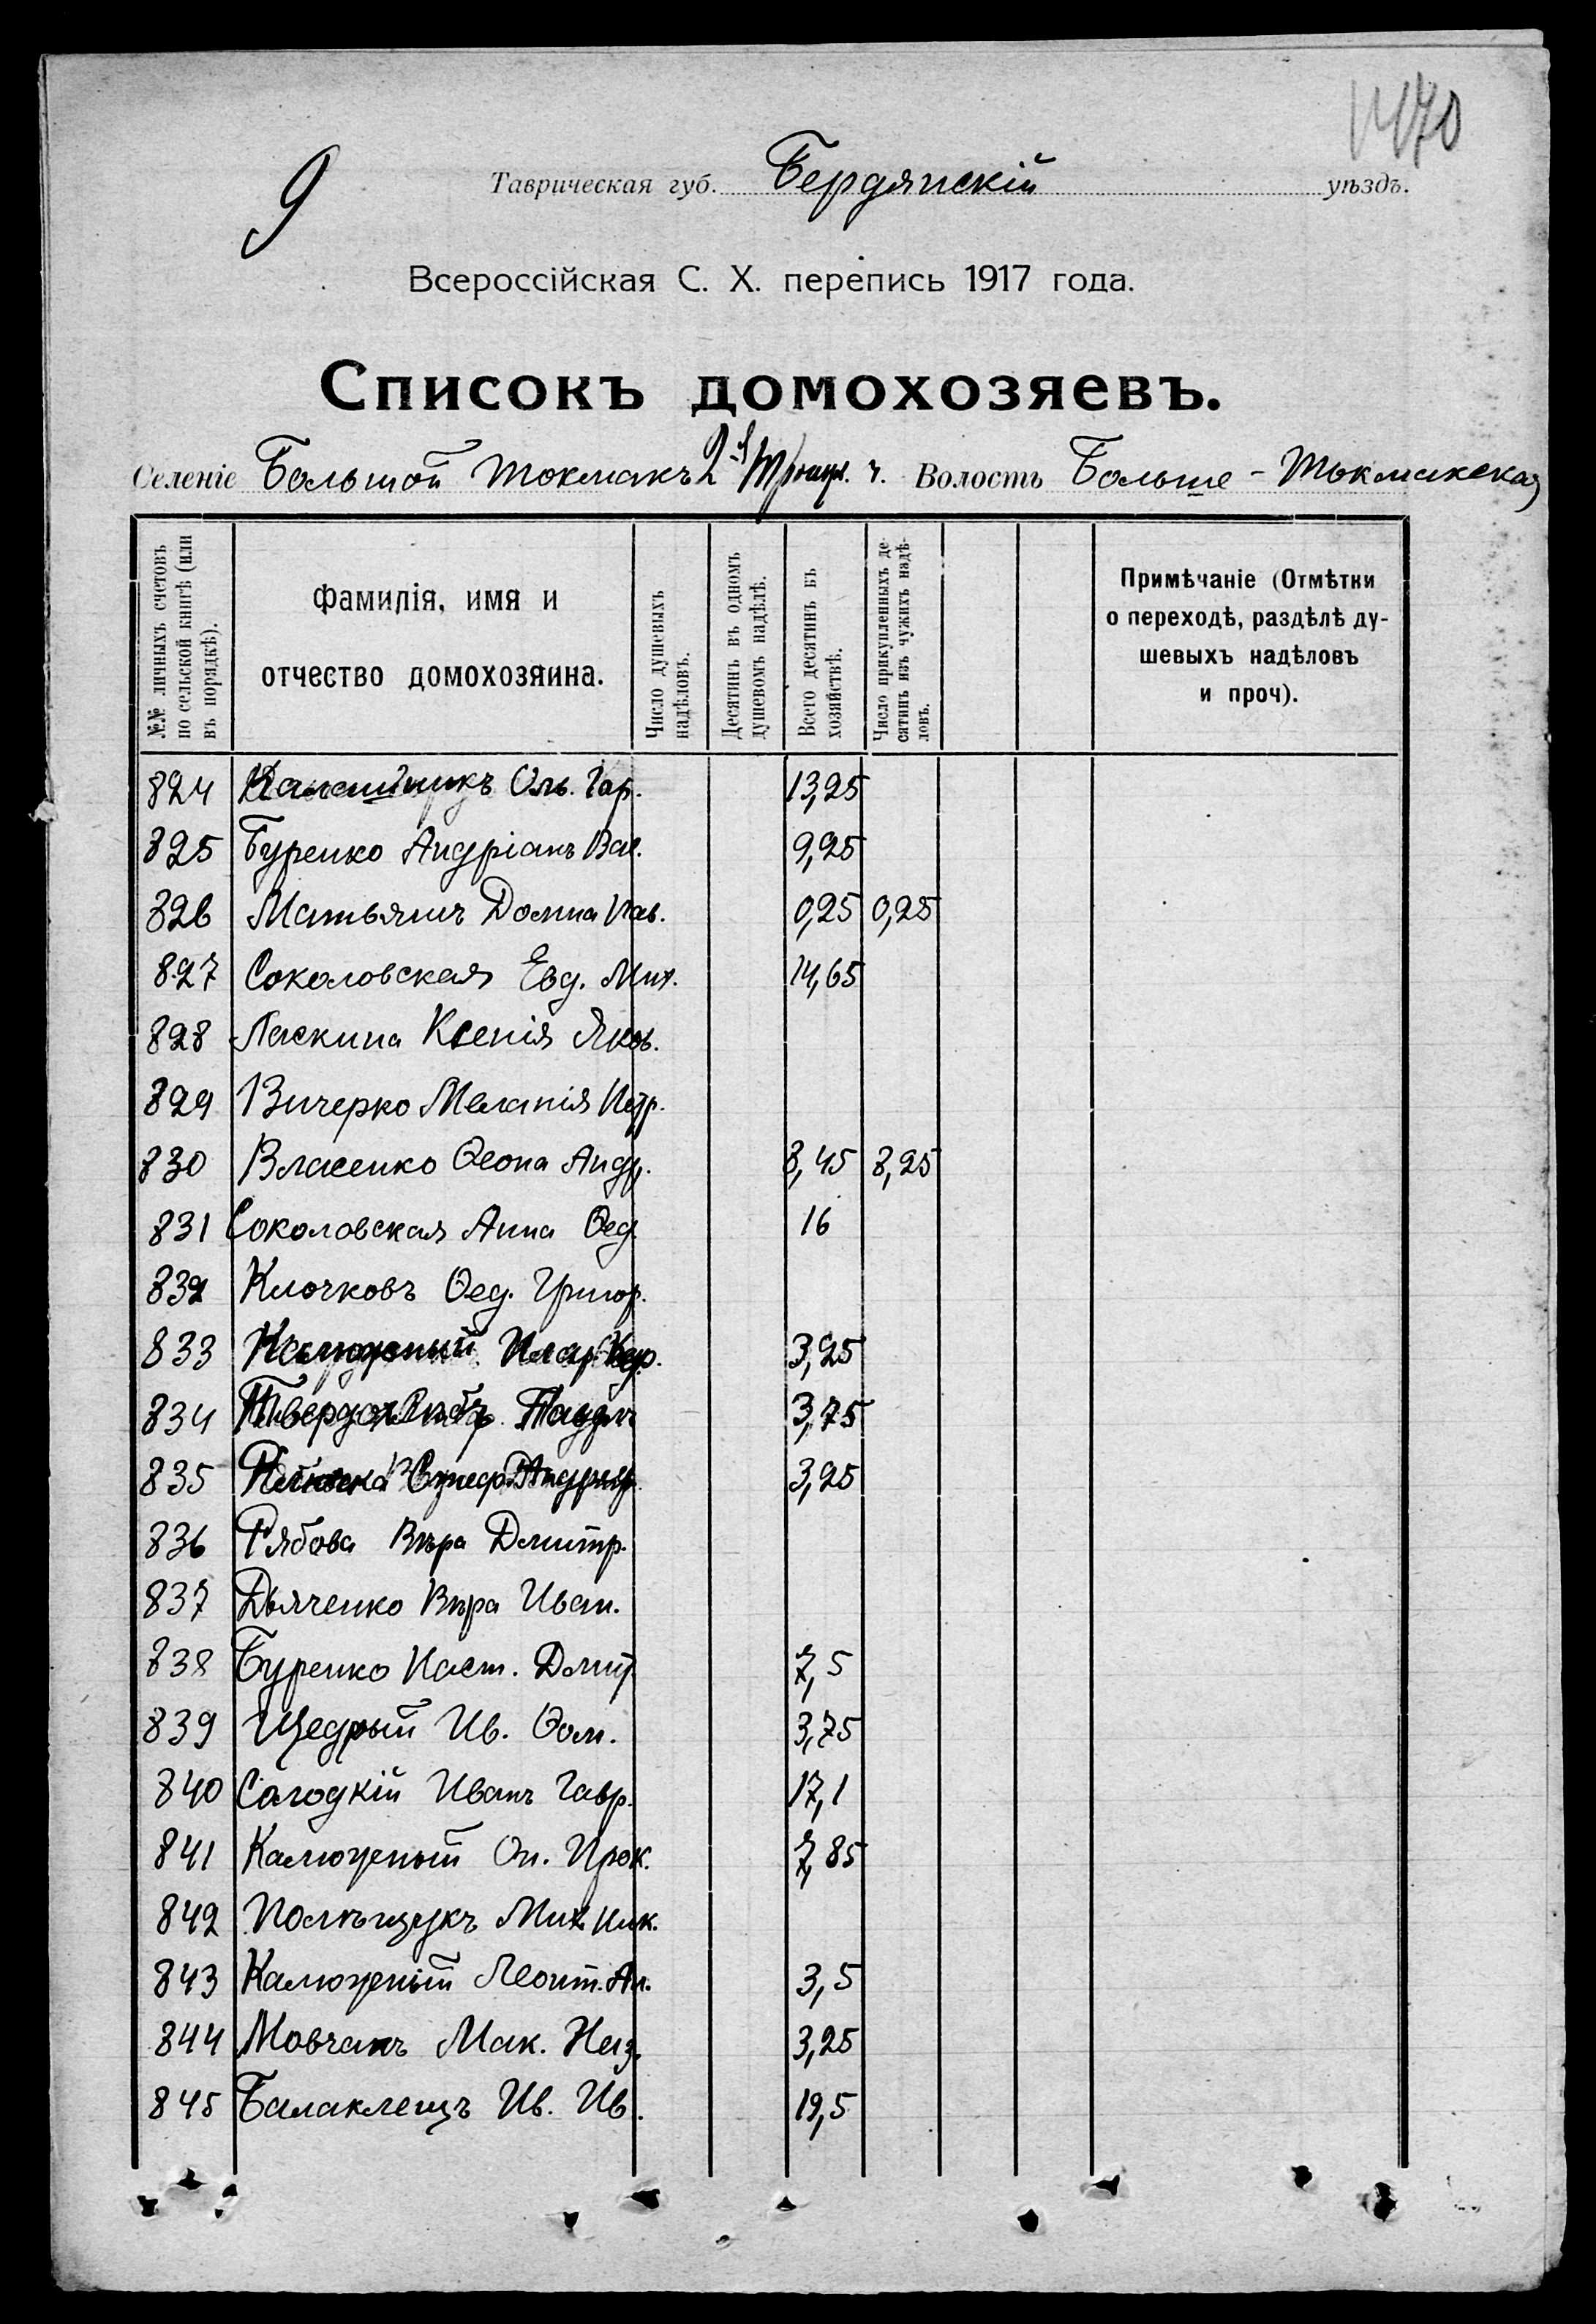 1470
9
Таврическая губ. Бердянскій уѣздъ.
Всероссійская С. Х. перепись 1917 года.
Списокъ домохозяевъ.
Селеніе Большой Токмакъ 2я Троицк. ч. Волость Больше-Токмакская
№№ личныхъ счетовъ по сельской книгѣ (или въ порядкѣ).
Фамилія, имя и отчество домохозяина.
Число душевыхъ надѣловъ.
Десятинъ въ одномъ душевомъ надѣлѣ.
Всего десятинъ въ хозяйствѣ.
Число прикупленныхъ десятинъ изъ чужихъ надѣловъ.
Примѣчаніе (Отмѣтки
о переходѣ, раздѣлѣ ду-
шевыхъ надѣловъ
и проч).
824 13,25
825 Буренко Андріанъ Вас. 9,25
826 Матьяшъ Домна Пав. 0,25 0,25
827 Соколовская Евд. Мих. 14,65
828 Ласкина Ксенія Яков.
829 Вичерко Меланія Петр.
830 Власенко Ѳеона Андр. 8,45 8,25
831 Соколовская Анна Ѳед. 16
832 Клочковъ Ѳед. Григор.
833 3,25
834 3,75
835 3,25
836 Рябова Вѣра Дмитр.
837 Дьяченко Вѣра Иван.
838 Буренко Наст. Дмит 7,5
839 Щедрый Ив. Ѳом. 3,75
840 Солодкій Иванъ Гавр. 17,1
841 Калюжный Он. Прок. 7,85
842 Полѣщукъ Мих. Ник.
843 Калюжный Леонт. Ан. 3,5
844 Мовчанъ Мак. Наз. 3,25
845 Балаклецъ Ив. Ив. 19,5